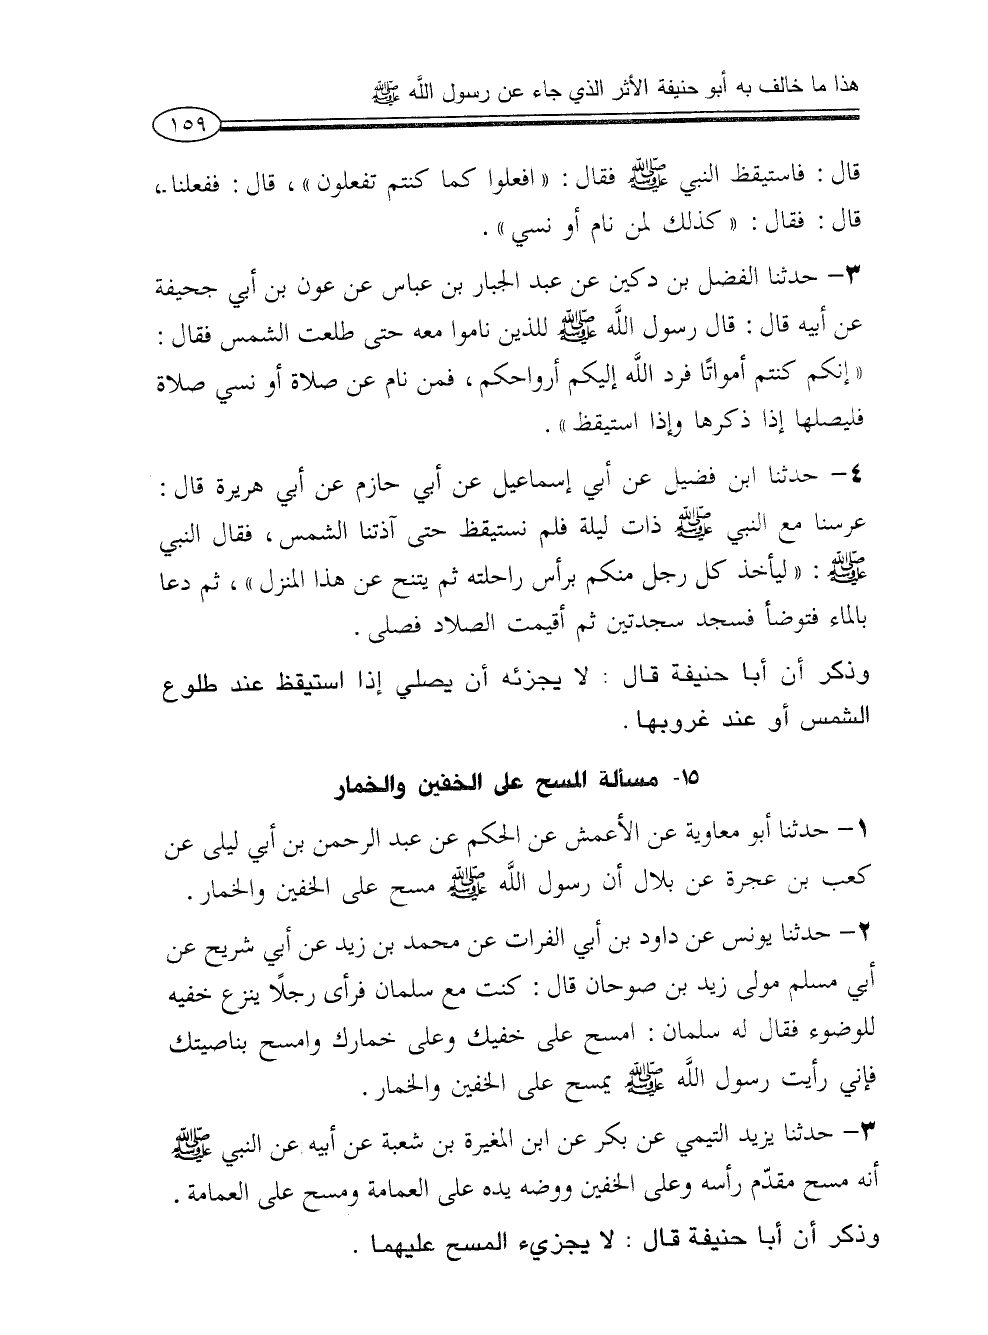 هذا ما خالف به أبو حنيفة الأثر الذي جاء عن رسول اللَّه ﷺ
١٥٩
قال : فاستيقظ النبي ﷺ فقال : « افعلوا كما كنتم تفعلون » ، قال : ففعلنا .،
قال : فقال : « كذلك لمن نام أو نسي » .
٣– حدثنا الفضل بن دكين عن عبد الجبار بن عباس عن عون بن أبي جحيفة
عن أبيه قال : قال رسول اللَّه ﷺ للذين ناموا معه حتى طلعت الشمس فقال :
« إنكم كنتم أمواتًا فرد اللَّه إليكم أرواحكم ، فمن نام عن صلاة أو نسي صلاة
فليصلها إذا ذكرها وإذا استيقظ » .
٤– حدثنا ابن فضيل عن أبي إسماعيل عن أبي حازم عن أبي هريرة قال :
عرسنا مع النبي ﷺ ذات ليلة فلم نستيقظ حتى آذتنا الشمس ، فقال النبي
ﷺ : « ليأخذ كل رجل منكم برأس راحلته ثم يتنح عن هذا المنزل » ، ثم دعا
بالماء فتوضأ فسجد سجدتين ثم أقيمت الصلاد فصلى .
وذكر أن أبا حنيفة قال : لا يجزئه أن يصلي إذا استيقظ عند طلوع
الشمس أو عند غروبها .
١٥- مسألة المسح على الخفين والخمار
١– حدثنا أبو معاوية عن الأعمش عن الحكم عن عبد الرحمن بن أبي ليلى عن
كعب بن عجرة عن بلال أن رسول اللَّه ﷺ مسح على الخفين والخمار .
٢– حدثنا يونس عن داود بن أبي الفرات عن محمد بن زيد عن أبي شريح عن
أبي مسلم مولى زيد بن صوحان قال : كنت مع سلمان فرأى رجلًا ينزع خفيه
للوضوء فقال له سلمان : امسح على خفيك وعلى خمارك وامسح بناصيتك
فإني رأيت رسول اللَّه ﷺ يمسح على الخفين والخمار .
٣– حدثنا يزيد التيمي عن بكر عن ابن المغيرة بن شعبة عن أبيه عن النبي ﷺ
أنه مسح مقدّم رأسه وعلى الخفين ووضه يده على العمامة ومسح على العمامة .
وذكر أن أبا حنيفة قال : لا يجزيء المسح عليهما .